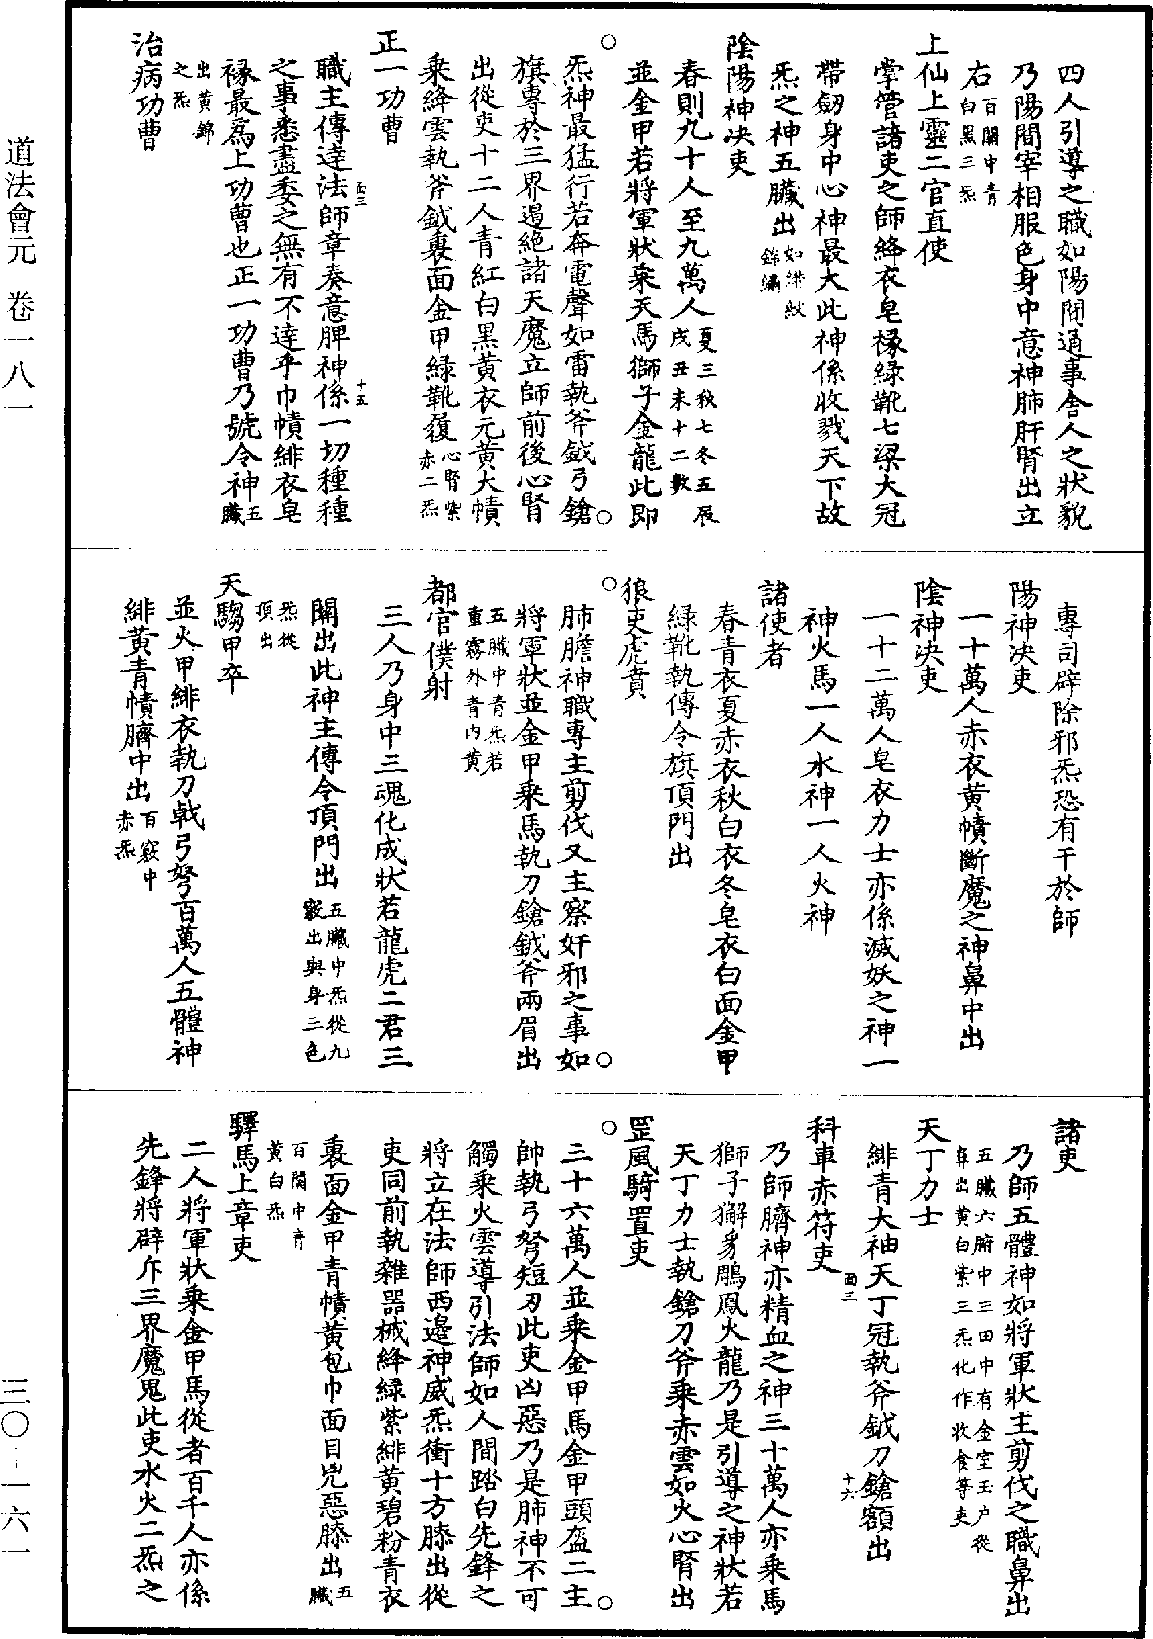 道法會元　卷一八一
三〇－一六一
四人引導之職如陽間通事舍人之狀貌
乃陽間宰相服色身中意神肺肝腎出立
右百關中青白黑三炁
上仙上靈二官直使
掌管諸吏之師絳衣皂椽綠靴七梁大冠
帶劔身中心神最大此神係收戮天下故
炁之神五臟出如絣紋錦繡
陰陽神决吏
春則九十人至九萬人夏三秋七冬五辰戌丑未十二數
並金甲若將軍狀乘天馬獅子金龍此即
炁神最猛行若奔電聲如雷執斧鉞弓鎗
旗專於三界遏絕諸天魔立師前後心腎
出從吏十二人青紅白黑黃衣元黃大幘
乘絳雲執斧鉞裏面金甲綠靴履心腎紫赤二炁
正一功曹
職主傳達法師章奏意脾神係一切種種
面三　十五
之事悉盡委之無有不達乎巾幘緋衣皂
褖最爲上功曹也正一功曹乃號令神五臟
出黃錦之炁
治病功曹
專司辟除邪炁恐有干於師
陽神决吏
一十萬人赤衣黃幘斷魔之神鼻中出
陰神决吏
一十二萬人皂衣力士亦係滅妖之神一
神火馬一人水神一人火神
諸使者
春青衣夏赤衣秋白衣冬皂衣白面金甲
綠靴執傳令旗頂門出
狼吏虎賁
肺膽神職專主剪伐又主察奸邪之事如
將軍狀並金甲乘馬執刀鎗鉞斧兩眉出
五臟中青炁若重霧外青內黃
都官僕射
三人乃身中三魂化成狀若龍虎二君三
關出此神主傳令頂門出五臟中炁從九竅出與身三色
炁從頂出
天騶甲卒
並火甲緋衣執刀戟弓弩百萬人五體神
緋黃青幘臍中出百竅中赤炁
諸吏
乃師五體神如將軍狀主剪伐之職鼻出
五臟六腑中三田中有金室玉户從鼻出黃白紫三炁化作收食等吏
天丁力士
緋青大袖天丁冠執斧鉞刀鎗額出
科車赤符吏
面三　十六
乃師臍神亦精血之神三十萬人亦乘馬
獅子獬豸鵰鳳火龍乃是引導之神狀若
天丁力士執鎗刀斧乘赤雲如火心腎出
罡風騎置吏
三十六萬人並乘金甲馬金甲頭盔二主
帥執弓弩短刃此吏凶惡乃是肺神不可
觸乘火雲導引法師如人間踏白先鋒之
將立在法師西邉神威炁衝十方膝出從
吏同前執雜器械絳綠紫緋黃碧粉青衣
裏面金甲青幘黃包巾面目兇惡膝出五臟
百關中青黃白炁
驛馬上章吏
二人將軍狀乘金甲馬從者百千人亦係
先鋒將辟斥三界魔鬼此吏水火二炁之